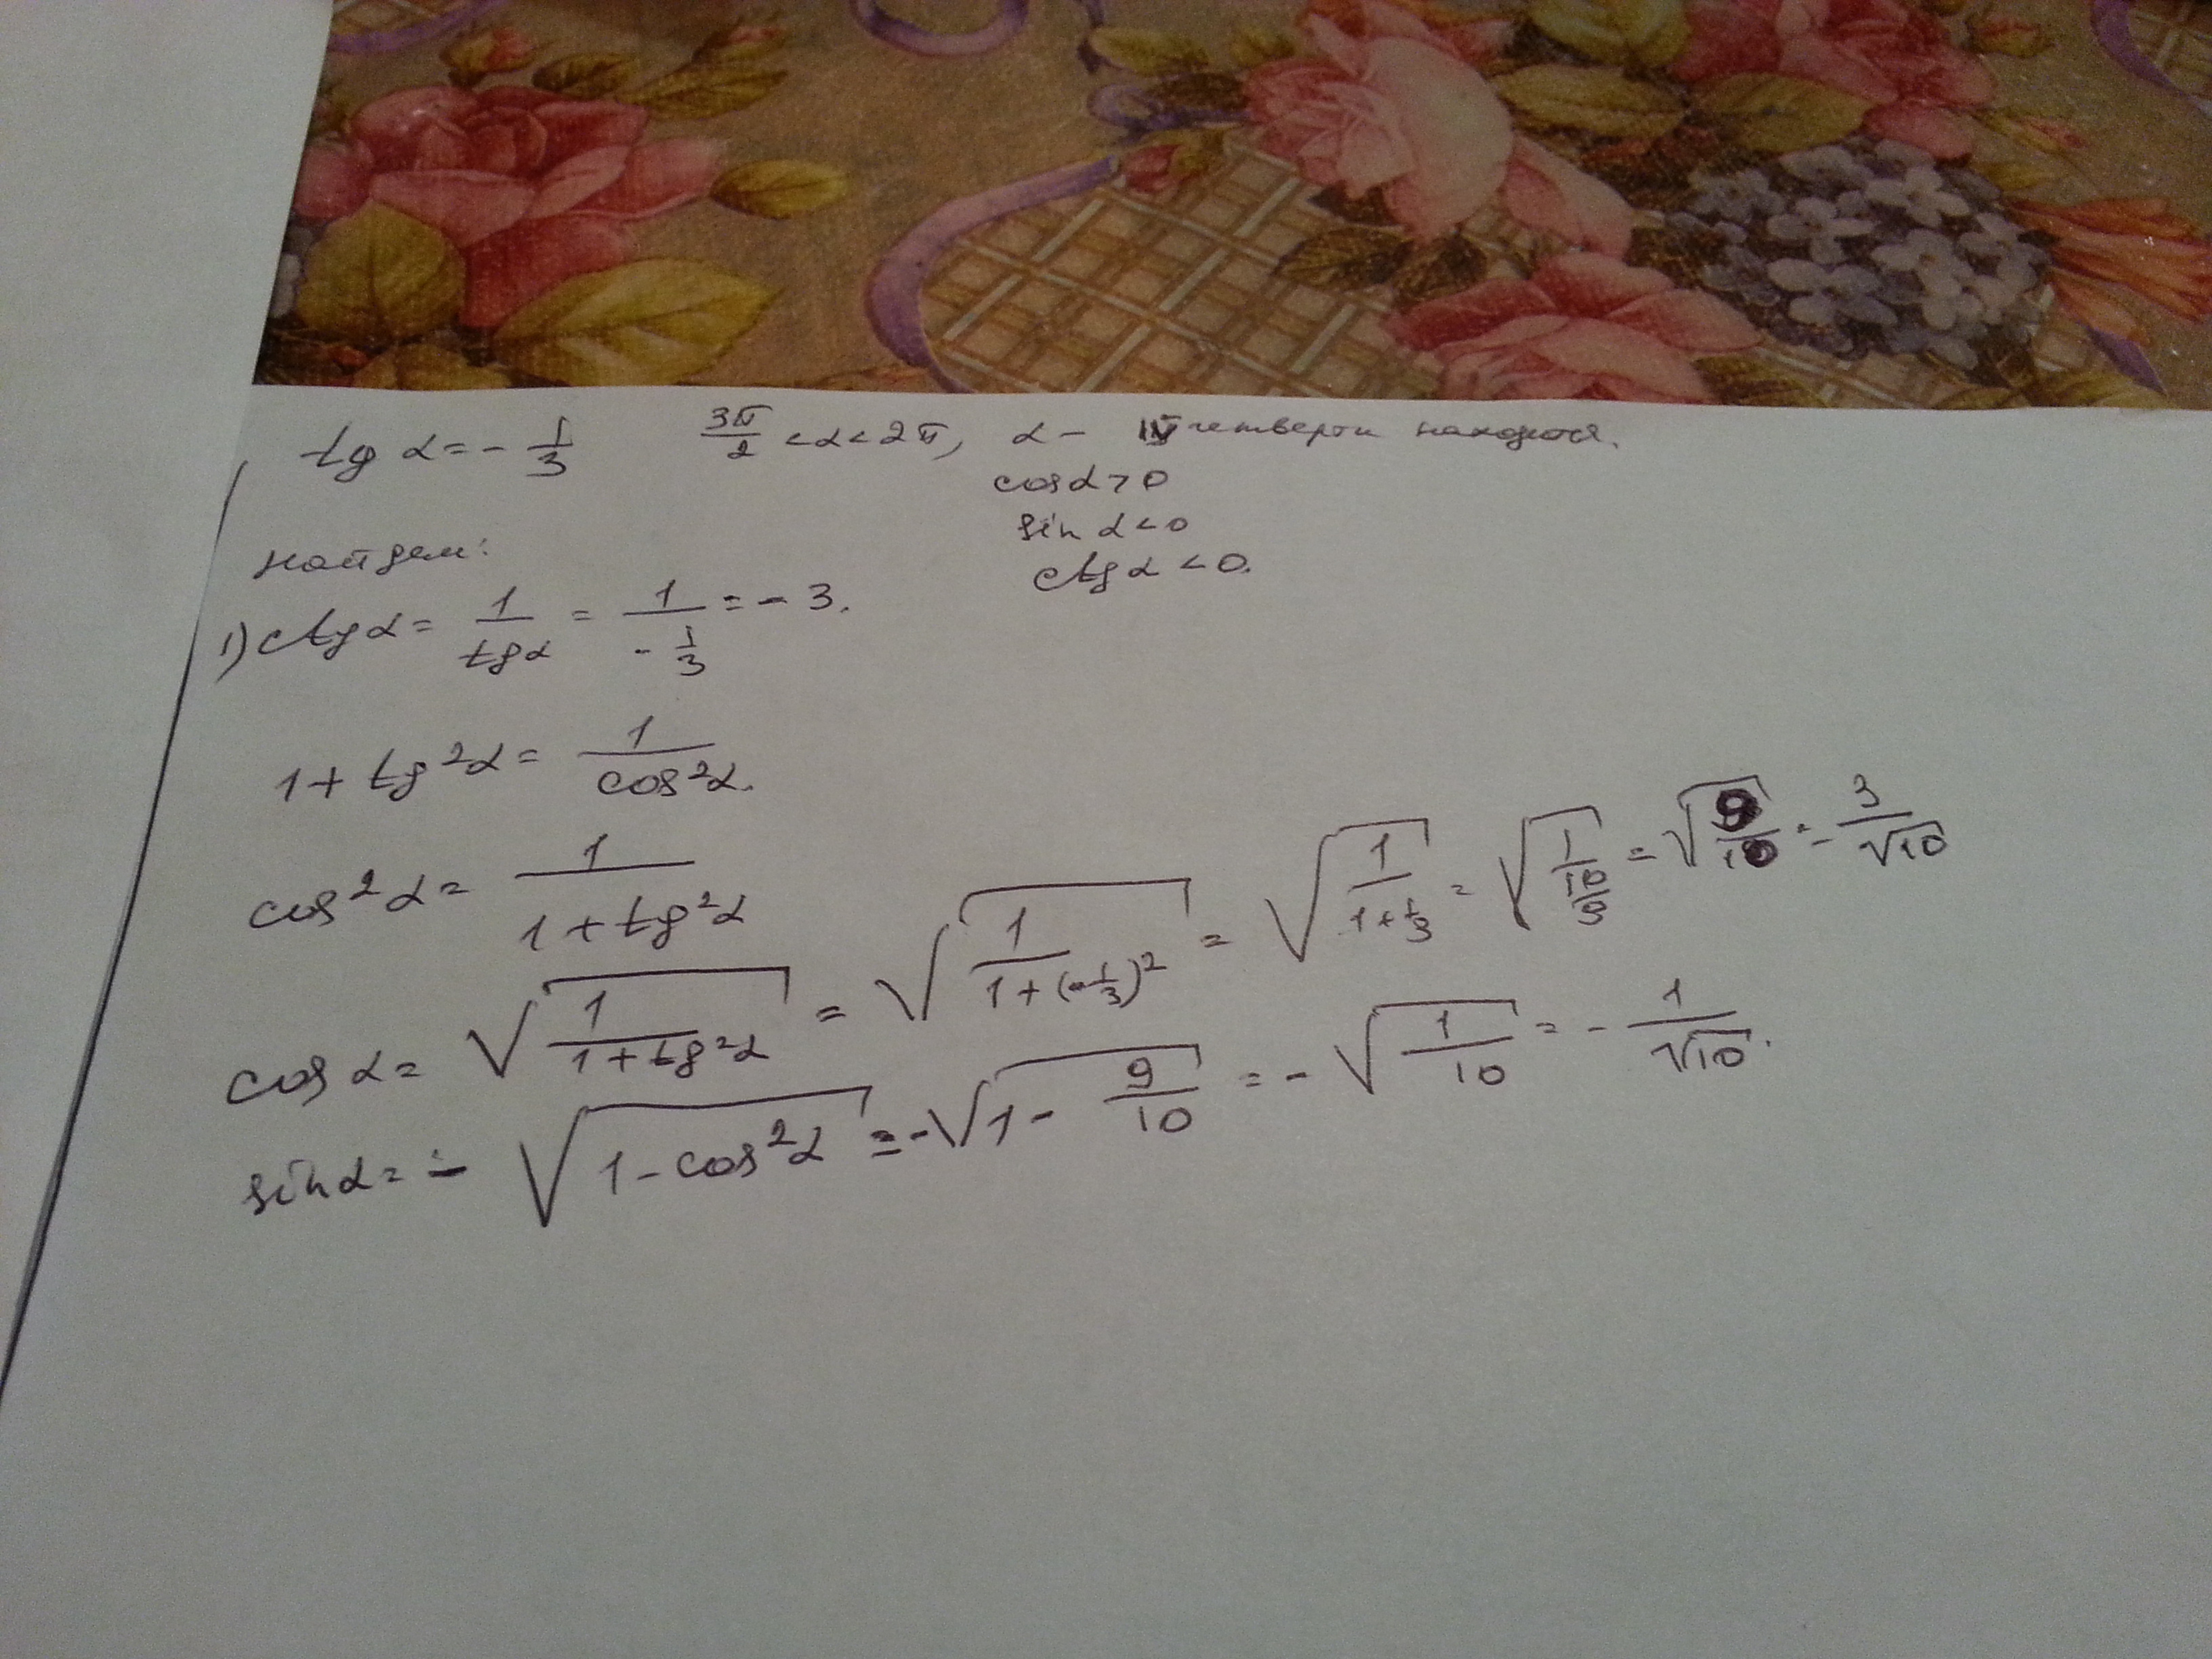 tg α = - 1/3   3π/2 < α < 2π, α - IV четверти находится.
cos α > 0
sin α < 0
ctg α < 0.
найдем:
1) ctg α = 1/tg α = 1/(- 1/3) = - 3.
1 + tg²α = 1/cos²α.
cos²α = 1/(1 + tg²α)
cos α = √(1/(1 + tg²α)) = √(1/(1 + (-1/3)²)) = √(1/(1 + 1/3)) = √(1/(10/9)) = √(9/10) = 3/√10
sin α = - √(1 - cos²α) = -√(1 - 9/10) = - √(1/10) = - 1/√10.